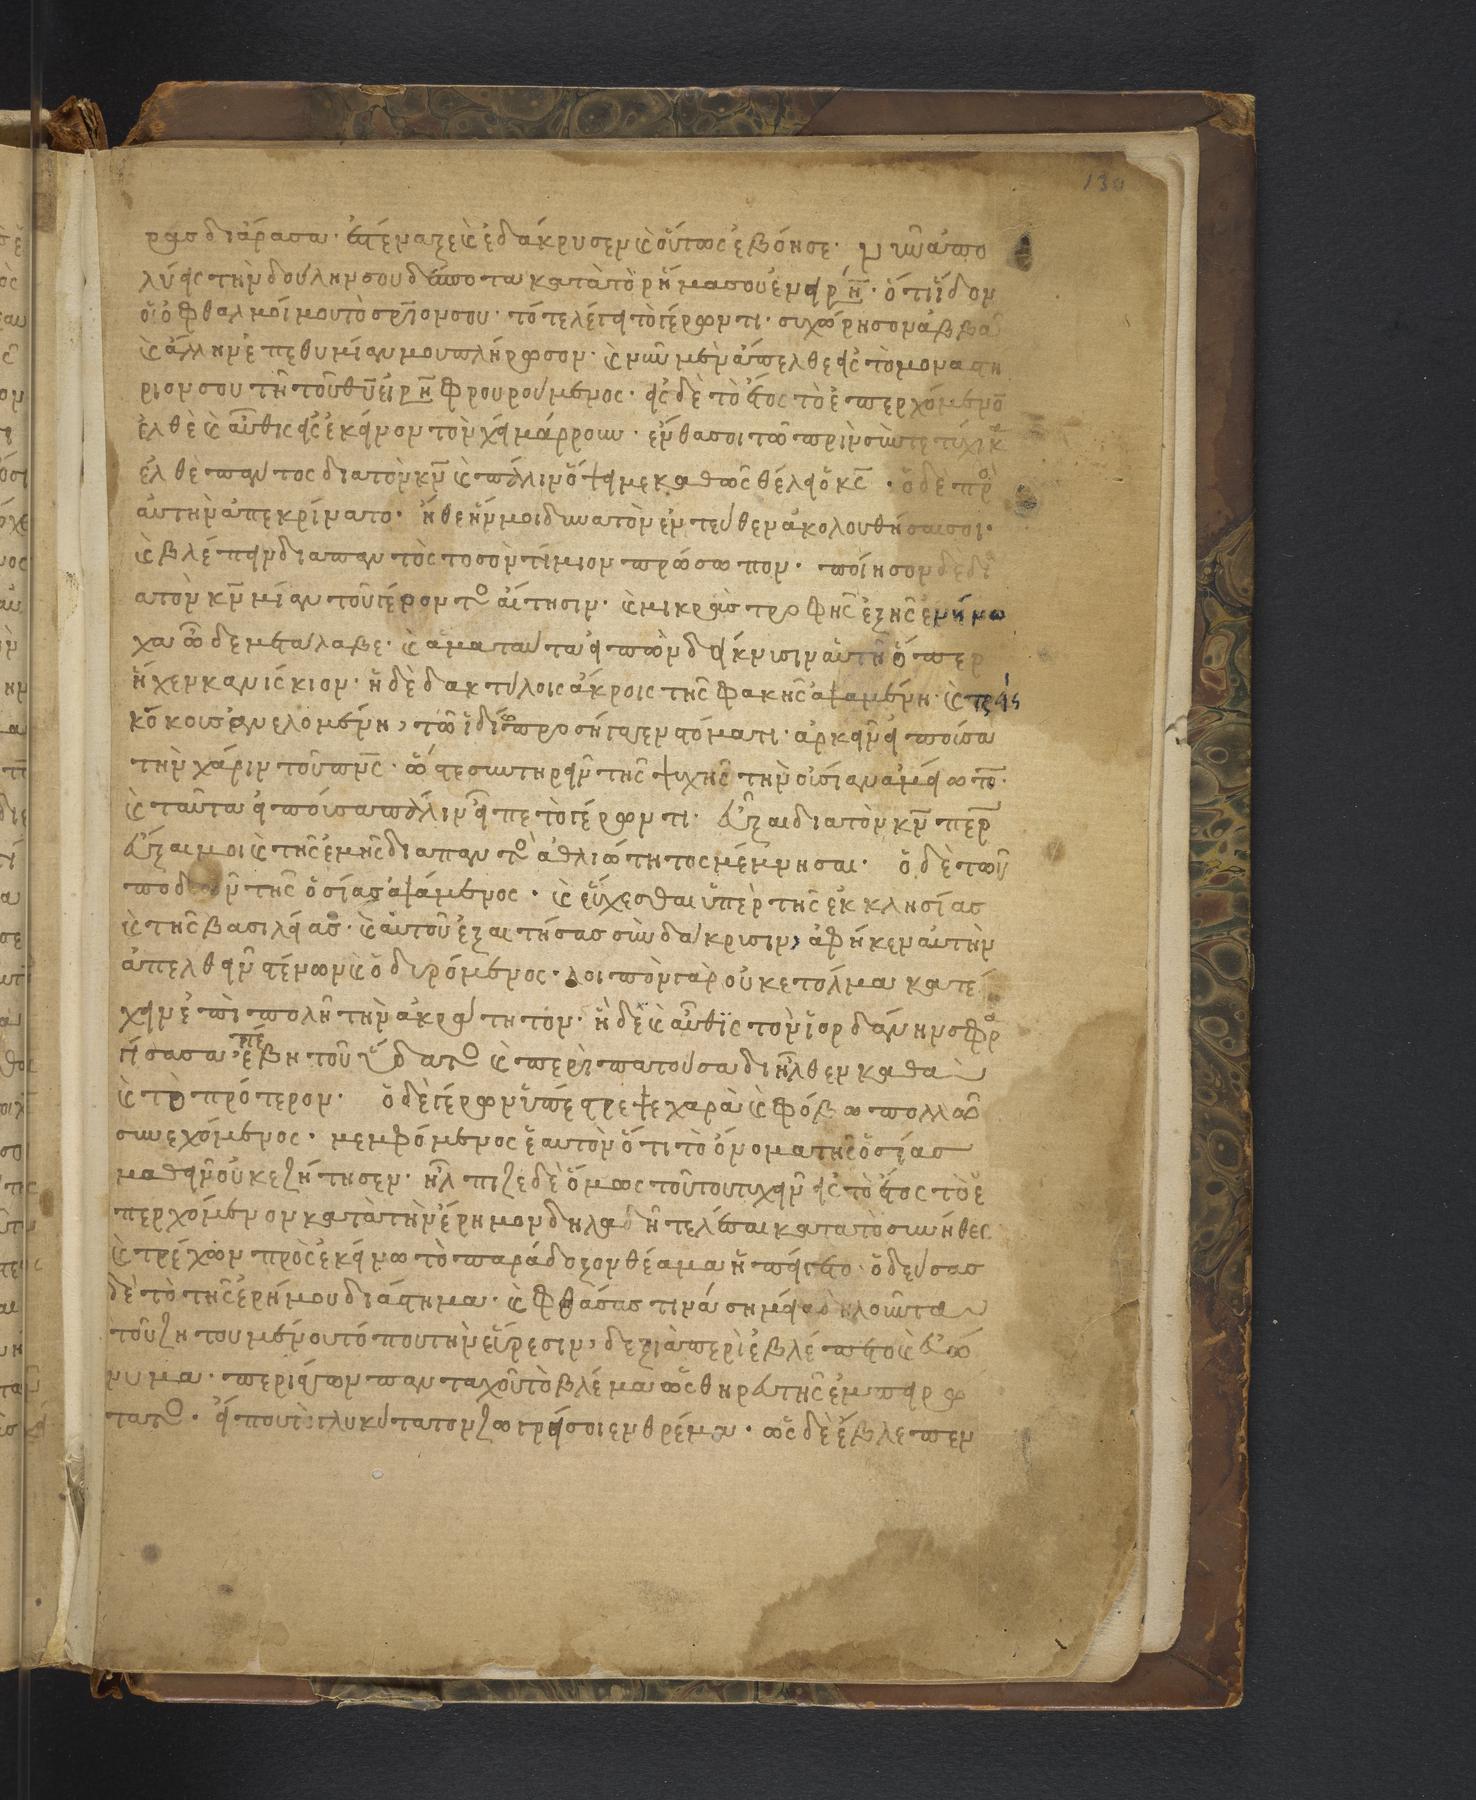 130
ρας διάρασα· ἐστέναξε καὶ ἐδάκρυσεν καὶ οὕτως ἐβόησε· νῦν ἀπο
λύεις τὴν δούλην σου δέσποτα κατὰ τὸ ρῆμα σου ἐν εἰρήνῃ· ὅτι εἶδον
οἱ ὀφθαλμοί μου τὸ σριόν σου· τότε λέγει τῶ γέροντι· συχώρησον ἀββᾶ
καὶ ἄλλην ἐπεθυμίαν μου πλήρωσον· καὶ νῦν μὲν ἄπελθε εἰς τὸ μοναστή
ριον σου τῆ τοῦ θυ εἰρήνη φρουρούμενος· εἰς δὲ τὸ ἔτος τὸ ἐπερχόμενον
ἐλθὲ καὶ αὖθις εἰς ἐκεῖνον τὸν χείμαρρουν· ἔνθα σοι τὸ πρὶν συντετύχηκα
ἐλθὲ πάντος διὰ τὸν κν καὶ πάλιν ὄψει με καθὼς θέλει ὁ κς· ὁ δὲ πρὸς
αὐτὴν ἀπεκρίνατο· εἴθε ἦν μοι δυνατὸν ἐντεῦθεν ἀκολουθῆσαι σοι·
καὶ βλέπειν διαπαντὸς το σὸν τίμιον πρώσωπον· ποίησον δὲ δι
ατὸν κν μίαν τοῦ γέροντος αἴτησιν· καὶ μικρὰς τροφῆς ἐξ ἧς ἐνήνο
χα ὧδε μετάλαβε· καὶ ἅμα ταῦτα εἰπὼν δείκνισιν αὐτῆ ὅπερ
ἦχεν κανίσκιον· ἡ δὲ δακτύλοις ἄκροις τῆς φακῆς ἁψαμένη· καὶ τρεῖς
κόκους ἀνελομένη, τῶ ἰδίω προσήγαγεν στόματι· ἀρκεῖν εἰποῦσα
τὴν χάριν τοῦ πνς· ὥστε συντηρεῖν τῆς ψυχῆς τὴν οὐσίαν ἀμείωτον·
καὶ ταῦτα εἰποῦσα πάλιν εἶπε τῶ γέροντι· εὖξαι διὰ τὸν κν περ
εὖξαι μοι καὶ τῆς ἐμῆς διαπαντὸς ἀθλιώτητος μέμνησαι· ὁ δὲ τῶν
ποδῶν τῆς ὁσίας ἁψάμενος· καὶ εὔχεσθαι ὑπὲρ τῆς ἐκκλησίας
καὶ τῆς βασιλείας· καὶ αὐτοῦ ἐξαιτήσας σὺν δάκρισιν, ἀφῆκεν αὐτὴν
ἀπελθεῖν στένων καὶ ὀδυρόμενος· λοιπὸν γὰρ οὐκ ετόλμα κατέ
χειν ἐπὶ πολῆ τὴν ἀκράτητον· ἡ δὲ καὶ αὖθϊς τὸν ἰορδάνην σφρα
γίσασα, ἐπέβη τοῦ ὕδατος καὶ περιπατοῦσα διῆλθεν καθὰ
καὶ τὸ πρότερον· ὁ δὲ γέρων ὑπέστρεψε χαρὰ καὶ φόβω πολλῶ
συνεχόμενος· μεμφόμενος ἑαυτὸν ὅτι τὸ ὄνομα τῆς ὁσίας
μαθεῖν οὐκ εζήτησεν· ἤλπιζε δὲ ὅμως τούτου τυχεῖν εἰς τὸ ἔτος τὸ ἐ
περχόμενον κατὰ τὴν ἔρημον δηλαδὴ τελέσαι κατα τὸ σύνηθες
καὶ τρέχων πρὸς ἐκεῖνο τὸ παράδοξον θέαμα ἠπείγετο· ὁδεύσας
δὲ τὸ τῆς ἐρήμου διάστημα· καὶ φθάσας τινά σημεῖα δηλοῦντα
τοῦ ζητουμένου τόπου τὴν εὕρεσιν, δεξιὰ περιέβλεπετο καὶ εὐώ
νυμα· περιάγων πανταχοῦ τὸ βλέμα ὡς θηρευτῆς ἐμπειρώ
τατος· εἴ που τὸ γλυκύτατον ζωγρήσοιεν θρέμα· ὡς δὲ ἔβλεπεν